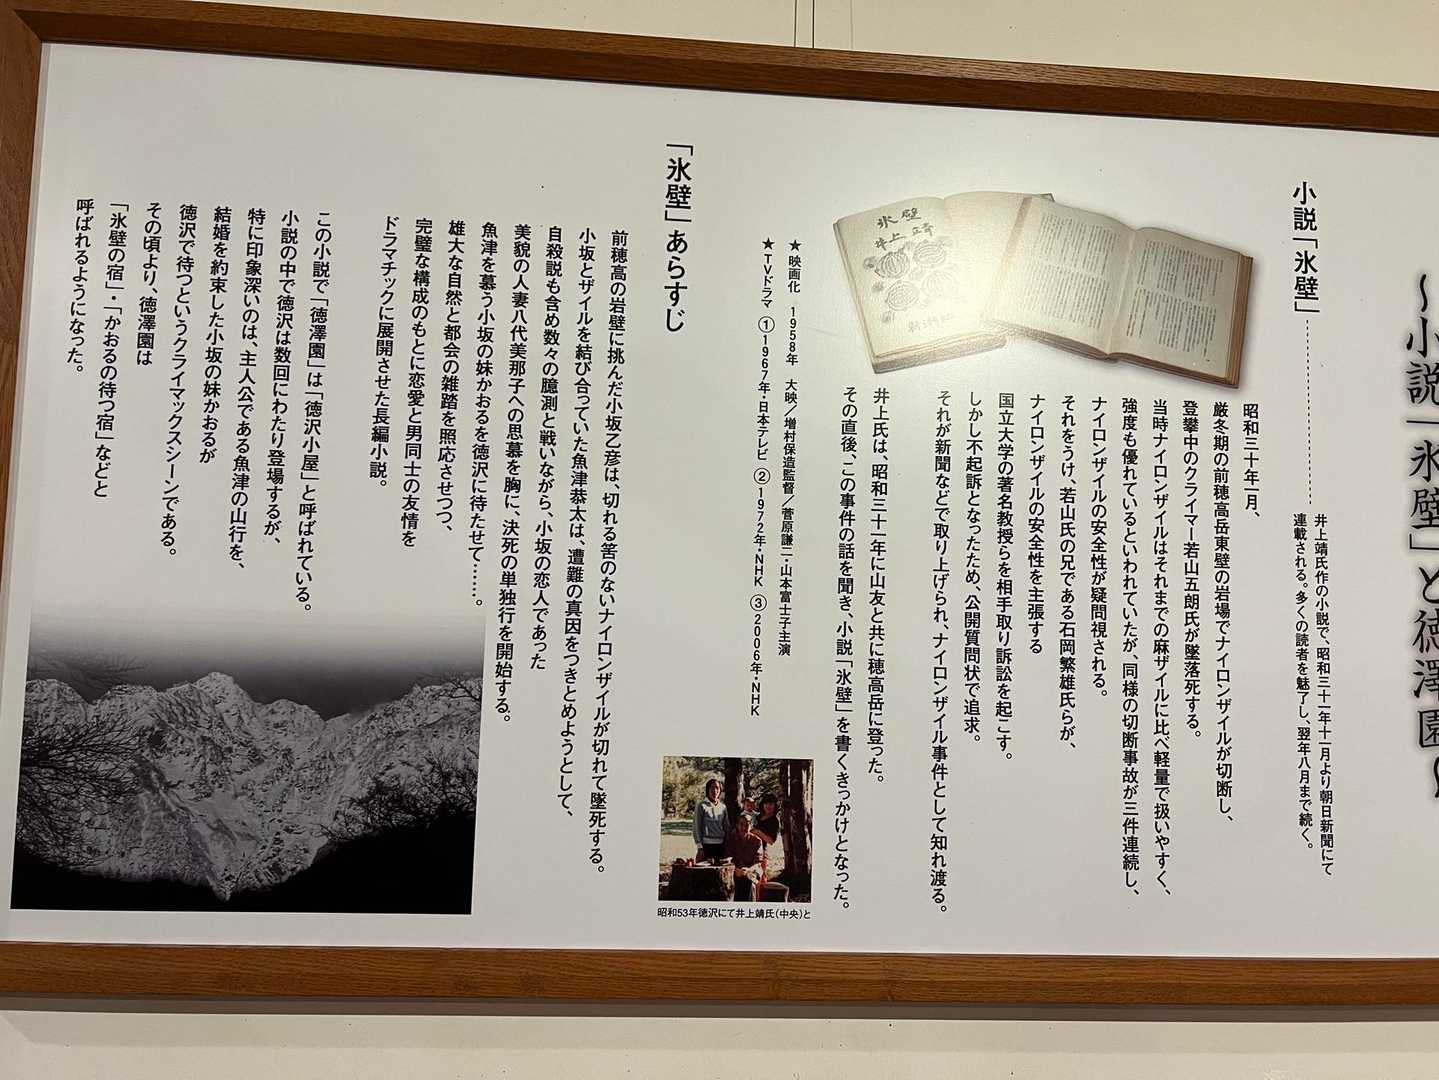 ～小説「氷壁」と徳澤園～
小説「氷壁」
井上靖氏作の小説で、昭和三十一年十一月より朝日新聞にて
連載される。多くの読者を魅了し、翌年八月まで続く。
氷壁
井上靖
昭和三十年一月、
厳冬期の前穂高岳東壁の岩場でナイロンザイルが切断し、
登攀中のクライマー若山五朗氏が墜落死する。
当時ナイロンザイルはそれまでの麻ザイルに比べ軽量で扱いやすく、
強度も優れているといわれていたが、同様の切断事故が三件連続し、
ナイロンザイルの安全性が疑問視される。
それをうけ、若山氏の兄である石岡繁雄氏らが、
ナイロンザイルの安全性を主張する
国立大学の著名教授らを相手取り訴訟を起こす。
しかし不起訴となったため、公開質問状で追求。
それが新聞などで取り上げられ、ナイロンザイル事件として知れ渡る。
井上氏は、昭和三十一年に山友と共に穂高岳に登った。
その直後、この事件の話を聞き、小説「氷壁」を書くきっかけとなった。
★映画化 1958年 大映／増村保造監督／菅原謙二・山本富士子主演
★TVドラマ ①1967年・日本テレビ ②1972年・NHK ③2006年・NHK
昭和53年徳沢にて井上靖氏（中央）と
「氷壁」あらすじ
前穂高の岩壁に挑んだ小坂乙彦は、切れる筈のないナイロンザイルが切れて墜死する。
小坂とザイルを結び合っていた魚津恭太は、遭難の真因をつきとめようとして、
自殺説も含め数々の臆測と戦いながら、小坂の恋人であった
美貌の人妻八代美那子への思慕を胸に、決死の単独行を開始する。
魚津を慕う小坂の妹かおるを徳沢に待たせて……。
雄大な自然と都会の雑踏を照応させつつ、
完璧な構成のもとに恋愛と男同士の友情を
ドラマチックに展開させた長編小説。
この小説で「徳澤園」は「徳沢小屋」と呼ばれている。
小説の中で徳沢は数回にわたり登場するが、
特に印象深いのは、主人公である魚津の山行を、
結婚を約束した小坂の妹かおるが
徳沢で待つというクライマックスシーンである。
その頃より、徳澤園は
「氷壁の宿」・「かおるの待つ宿」などと
呼ばれるようになった。